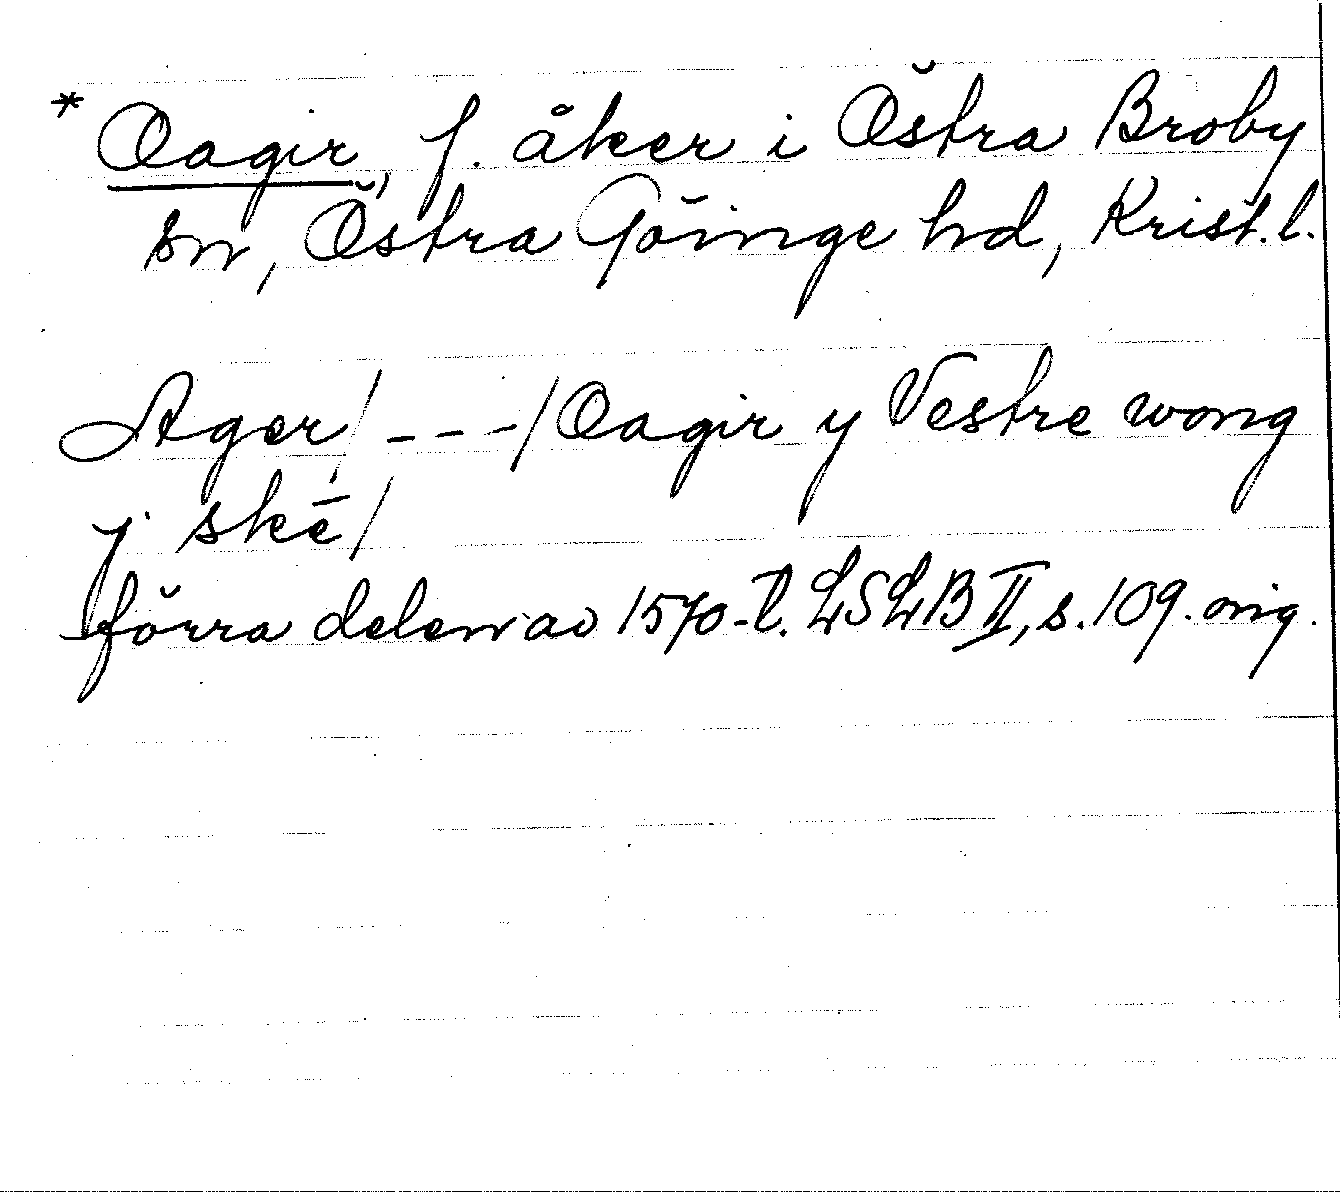 * Oagir, f. åker i Östra Broby
sn, Östra Göinge hd, Krist. l.
Ager / - - - / Oagir y Vestre wong
j skē /
förra delen av 1570-t. LSLB II, s. 109. orig.